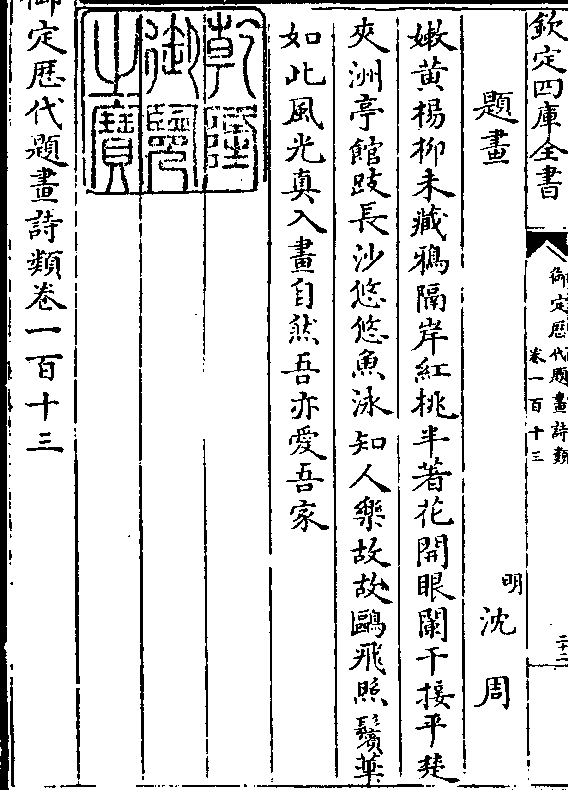 欽定四庫全書
御定歷代題畫詩類
卷一百十三
題畫
明
沈周
嫩黃楊柳未藏鴉隔岸紅桃半著花開眼闌干接平楚
夾洲亭館跂長沙悠悠魚泳知人樂故故鷗飛照鬢華
如此風光真入畫自然吾亦愛吾家
乾隆
御覽
之寶
御定歷代題畫詩類卷一百十三